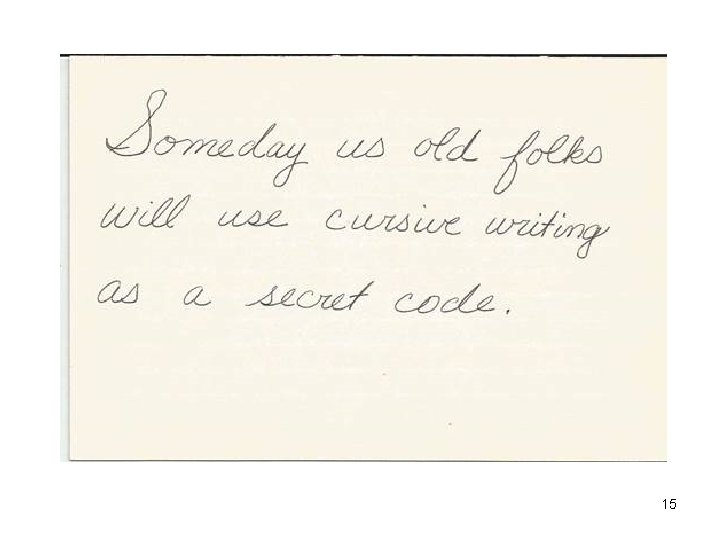 Someday us old folks
will use cursive writing
as a secret code.
15